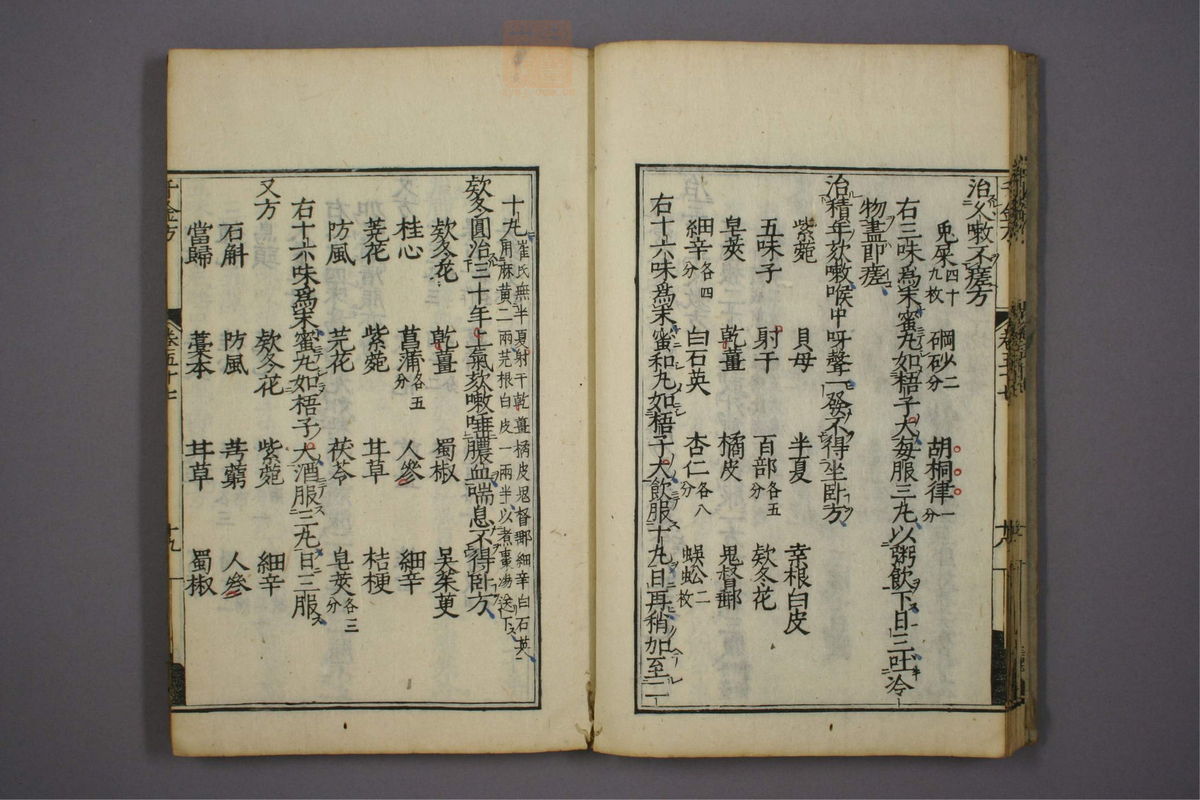 治久嗽不瘥方
兎屎四十九枚 硇砂二分 胡桐律一分
右三味爲末蜜丸如梧子大每服三丸以粥飲下日三吐冷
物盡即瘥
治積年欬嗽喉中呀聲一發不得坐臥方
紫菀 貝母 半夏 桒根白皮
五味子 射干 百部各五分 欵冬花
皂莢 乾薑 橘皮 鬼督郵
細辛各四分 白石英 杏仁各八分 蜈蚣二枚
右十六味爲末蜜和丸如梧子大飲服十丸日再稍加至二
十丸崔氏無半夏射干乾薑橘皮鬼督郵細辛白石英
用麻黃二兩芫根白皮一兩半以煮棗湯送下
欵冬圓治三十年上氣欬嗽唾膿血喘息不得臥方
欵冬花 乾薑 蜀椒 吳茱萸
桂心 菖蒲各五分 人參 細辛
蕘花 紫菀 茸草 桔梗
防風 芫花 茯苓 皂莢各三分
右十六味爲末蜜丸如梧子大酒服三丸日三服
又方 欵冬花 紫菀 細辛
石斛 防風 芎藭 人參
當歸 藁本 茸草 蜀椒
千金方 卷五十七 十九